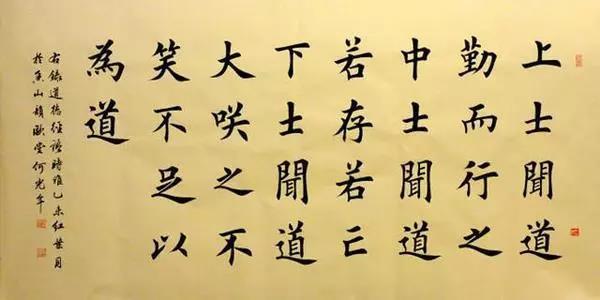 上士聞道
勤而行之
中士聞道
若存若亡
下士聞道
大咲之不
笑不足以
為道
右錄道德經語時維乙未红葉月
於魚山堂何光年